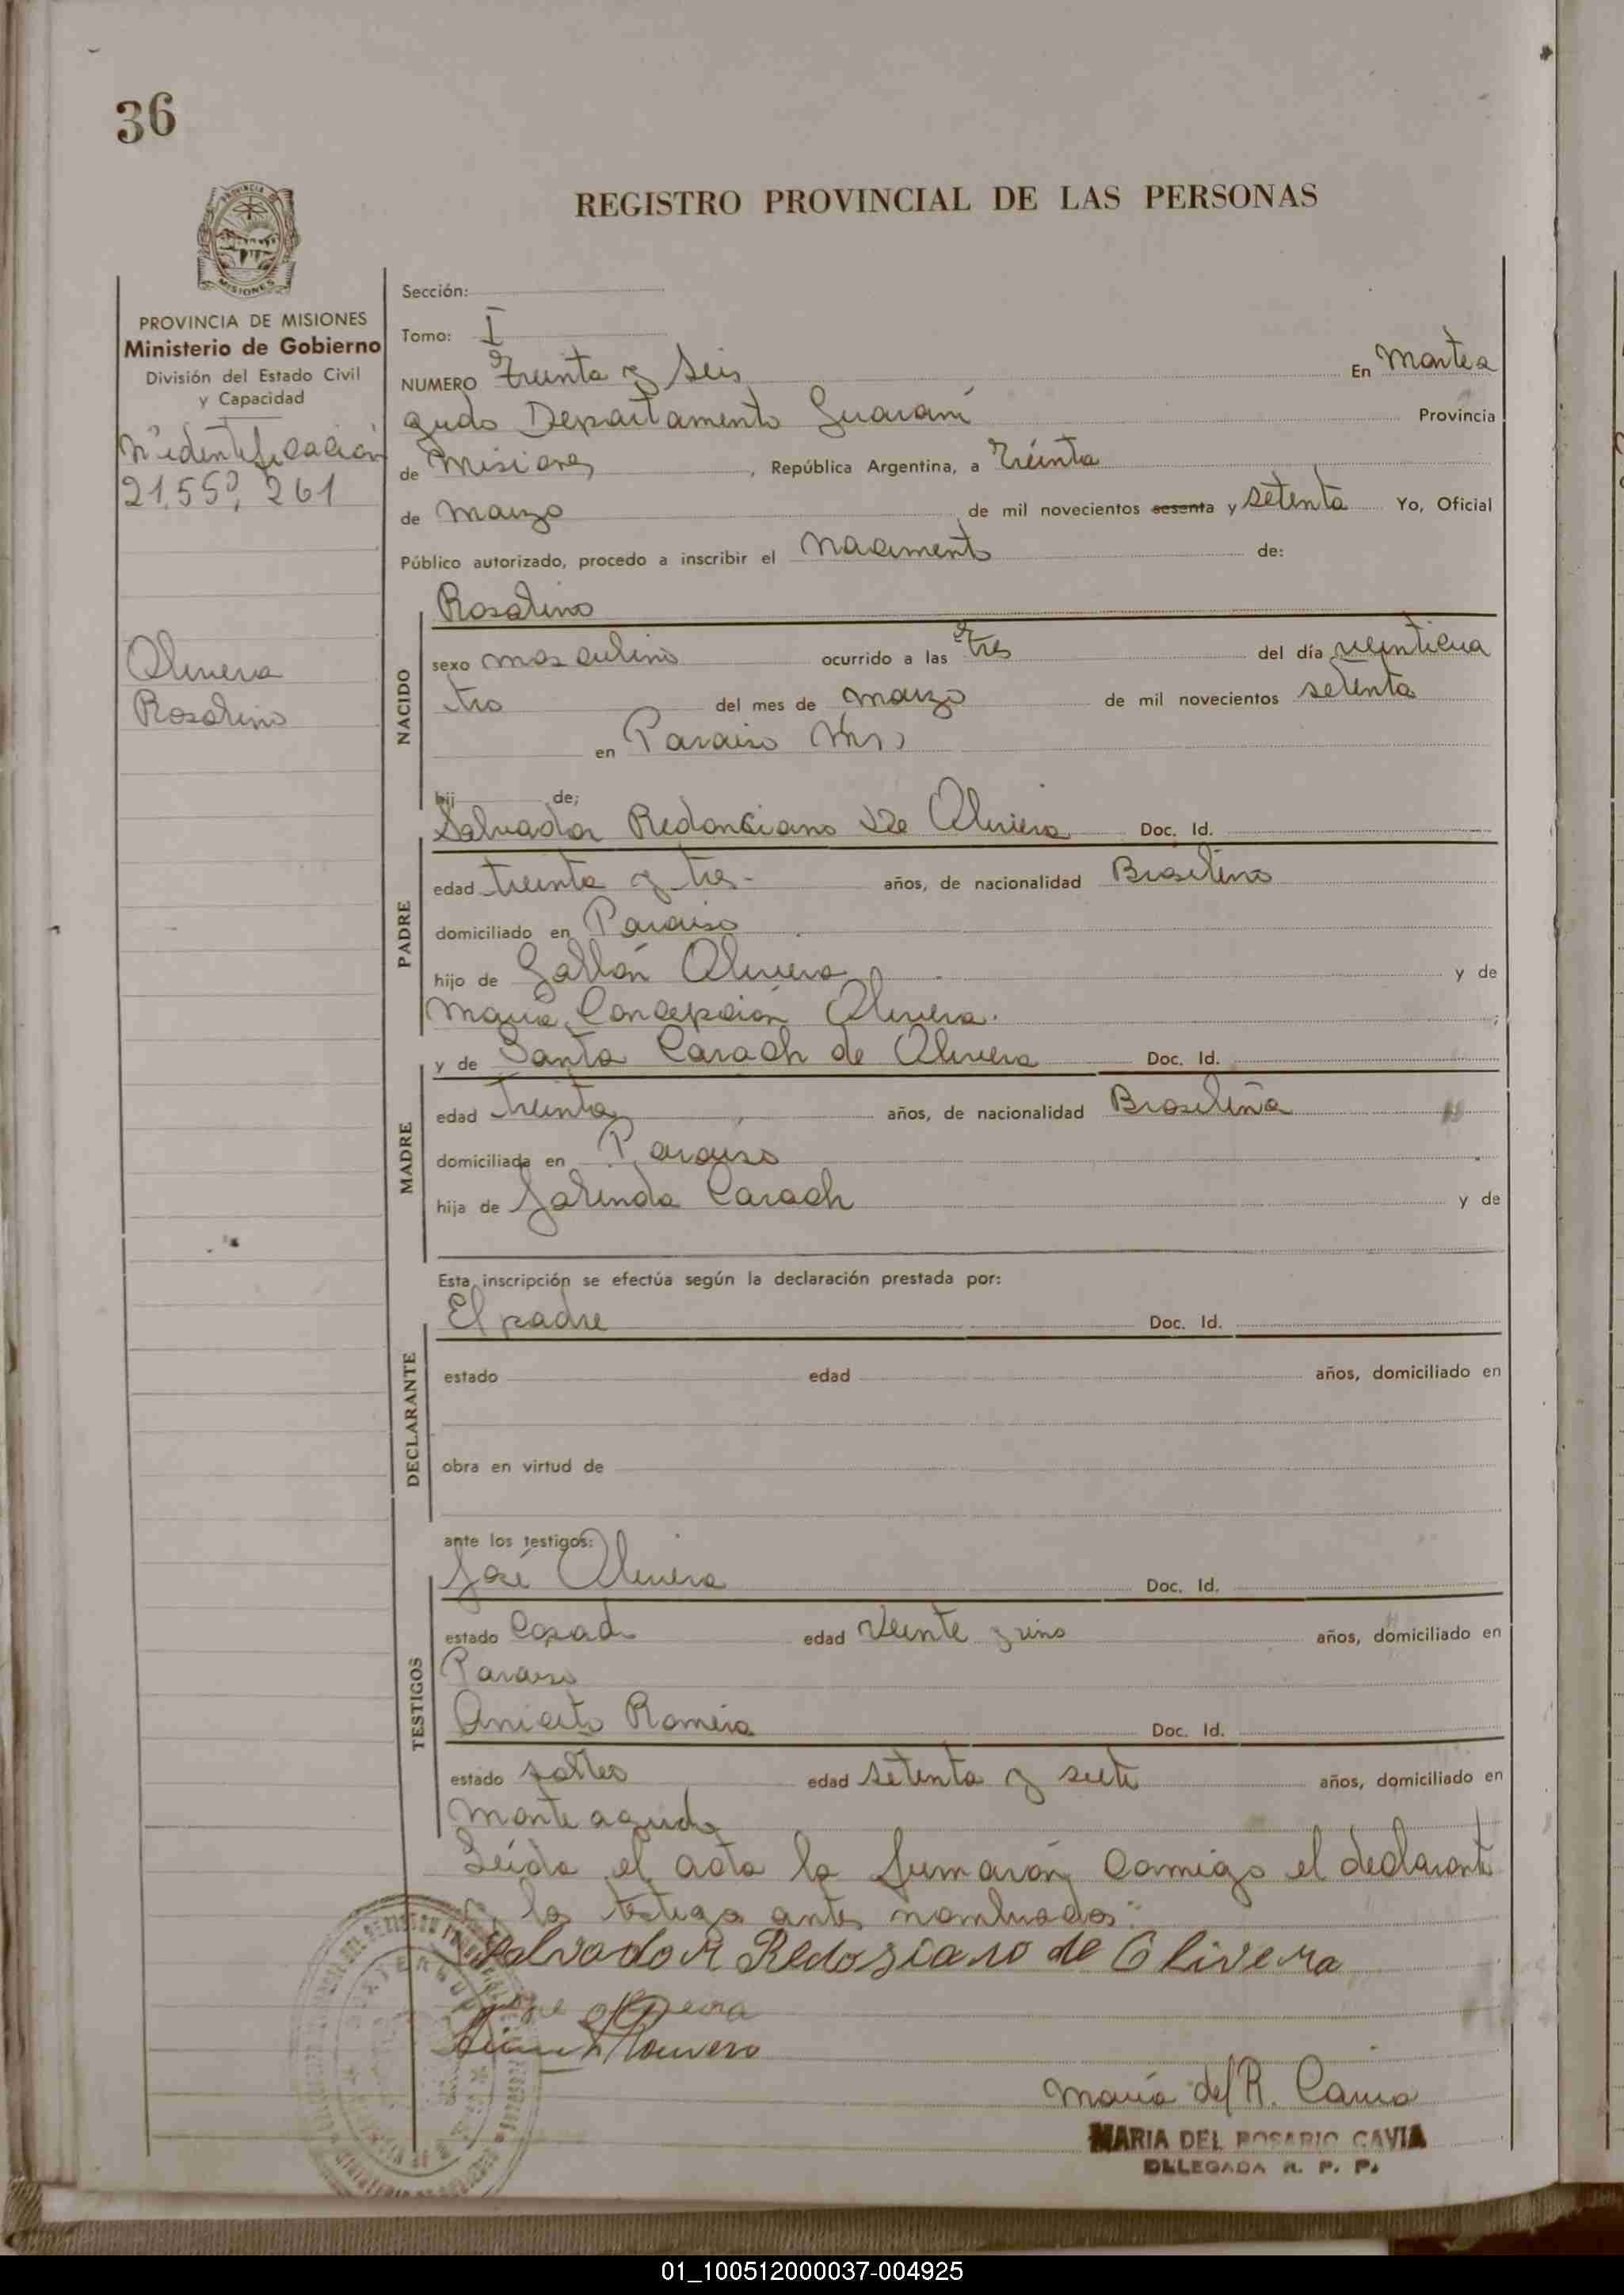 36
REGISTRO PROVINCIAL DE LAS PERSONAS
PROVINCIA DE MISIONES
Ministerio de Gobierno
División del Estado Civil
y Capacidad
Nº identificación
21.55
261
Olivera
Rosalino
Sección:
Tomo: I
NUMERO Treinta y Seis En Montea
gudo Departamento Guaraní Provincia
de Misiones, República Argentina, a Treinta
de Marzo de mil novecientos sesenta y setenta Yo, Oficial
Público autorizado, procedo a inscribir el Nacimiento de:
NACIDO
Rosalino
sexo masculino ocurrido a las tres del día veinticua
tro del mes de marzo de mil novecientos setenta
en Paraiso
hij de;
PADRE
Salvador de Olivera Doc. Id.
edad treinta y tres años, de nacionalidad Brasilena
domiciliado en Paraiso
hijo de Olivera y de
María Concepción Olivera.
MADRE
y de Santa Carach de Olivera Doc. Id.
edad Treinta años, de nacionalidad Brasileña
domiciliada en Paraiso
hija de Carach y de
Esta inscripción se efectúa según la declaración prestada por:
DECLARANTE
El padre Doc. Id.
estado edad años, domiciliado en
obra en virtud de
ante los testigos:
TESTIGOS
José Olivera Doc. Id.
estado Casado edad Veinte y uno años, domiciliado en
Paraiso
Aniceto Romero Doc. Id.
estado soltero edad setenta y siete años, domiciliado en
Monteagudo
Leída el acta la firmaron conmigo el declarante
los testigos antes nombrados:
Salvador Redosiano de Olivera
Romero
María del R. Cavia
MARIA DEL ROSARIO CAVIA
DELEGADA R. P. P.
01_100512000037-004925